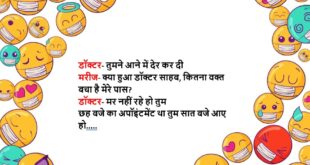 डॉक्टर- तुमने आने में देर कर दी
मरीज- क्या हुआ डॉक्टर साहब, कितना वक्त
बचा है मेरे पास?
डॉक्टर- मर नहीं रहे हो तुम
छह बजे का अपॉइंटमेंट था तुम सात बजे आए
हो.....